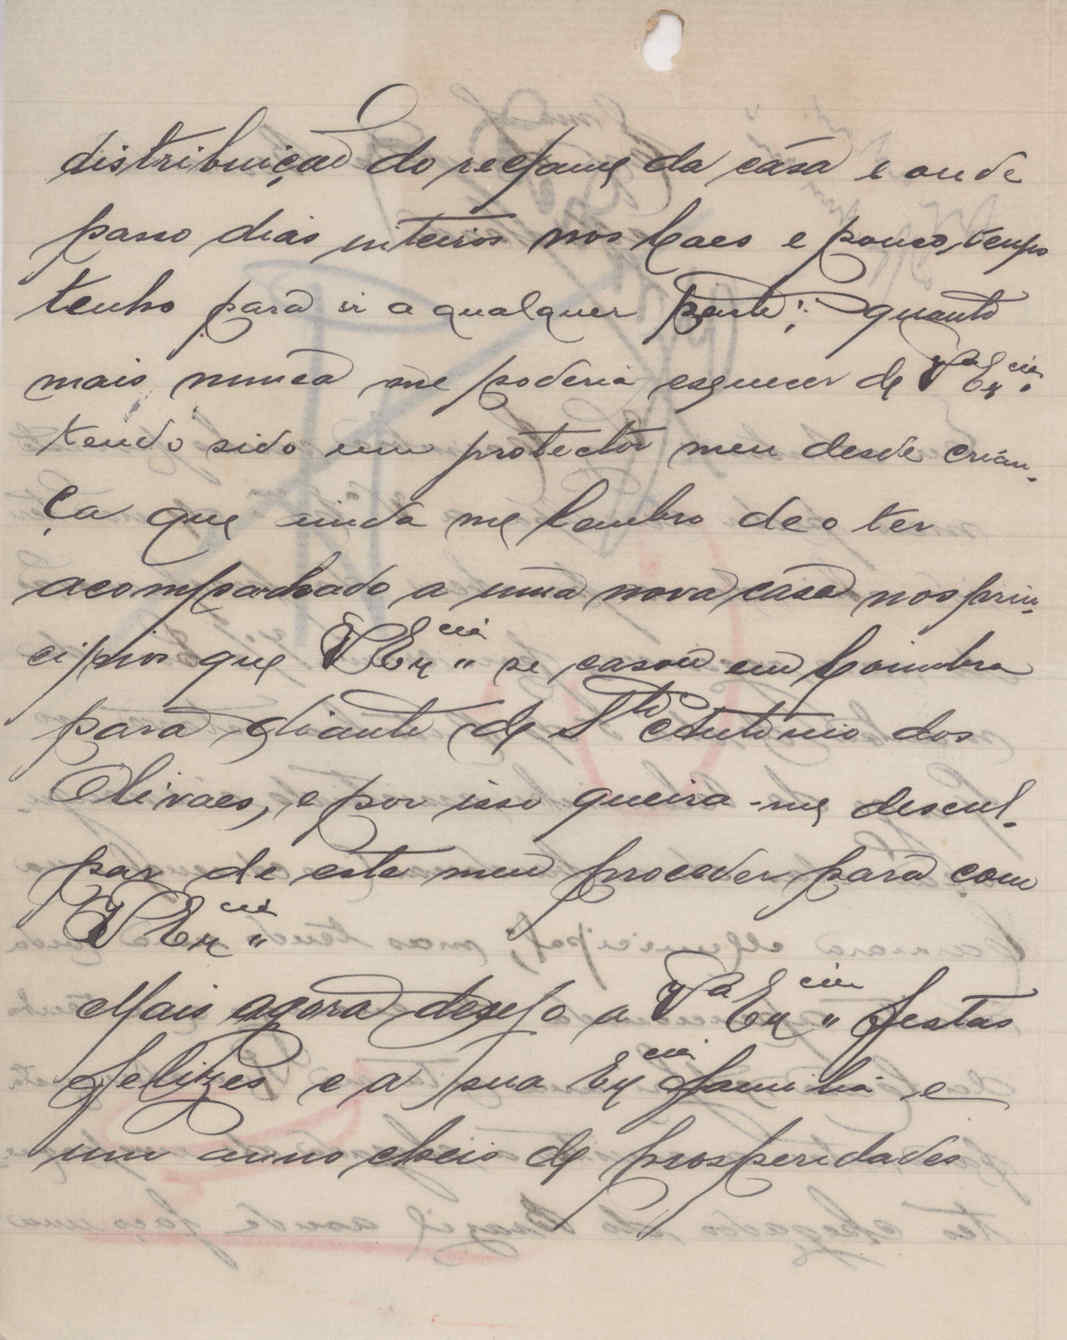 distribuição do reclame da cása e onde
passo dias inteiros nos Caes e pouco tempo
tenho para ir a qualquer parte; quanto
mais nunca me poderia esquecer de Vª Exciª
tendo sido um protector meu desde crian-
ça que ainda me lembro de o ter
acompanhado a uma nova casa nos prin-
cipios que V Exciª se casou em Coimbra
para diante de Sto Antonio dos
Olivaes, e por isso queira-me descul-
par de este meu proceder para com
V Exciª
Mais agora desejo a Vª Exciª festas
felizes e a sua Exciª familia e
um anno cheio de prosperidades